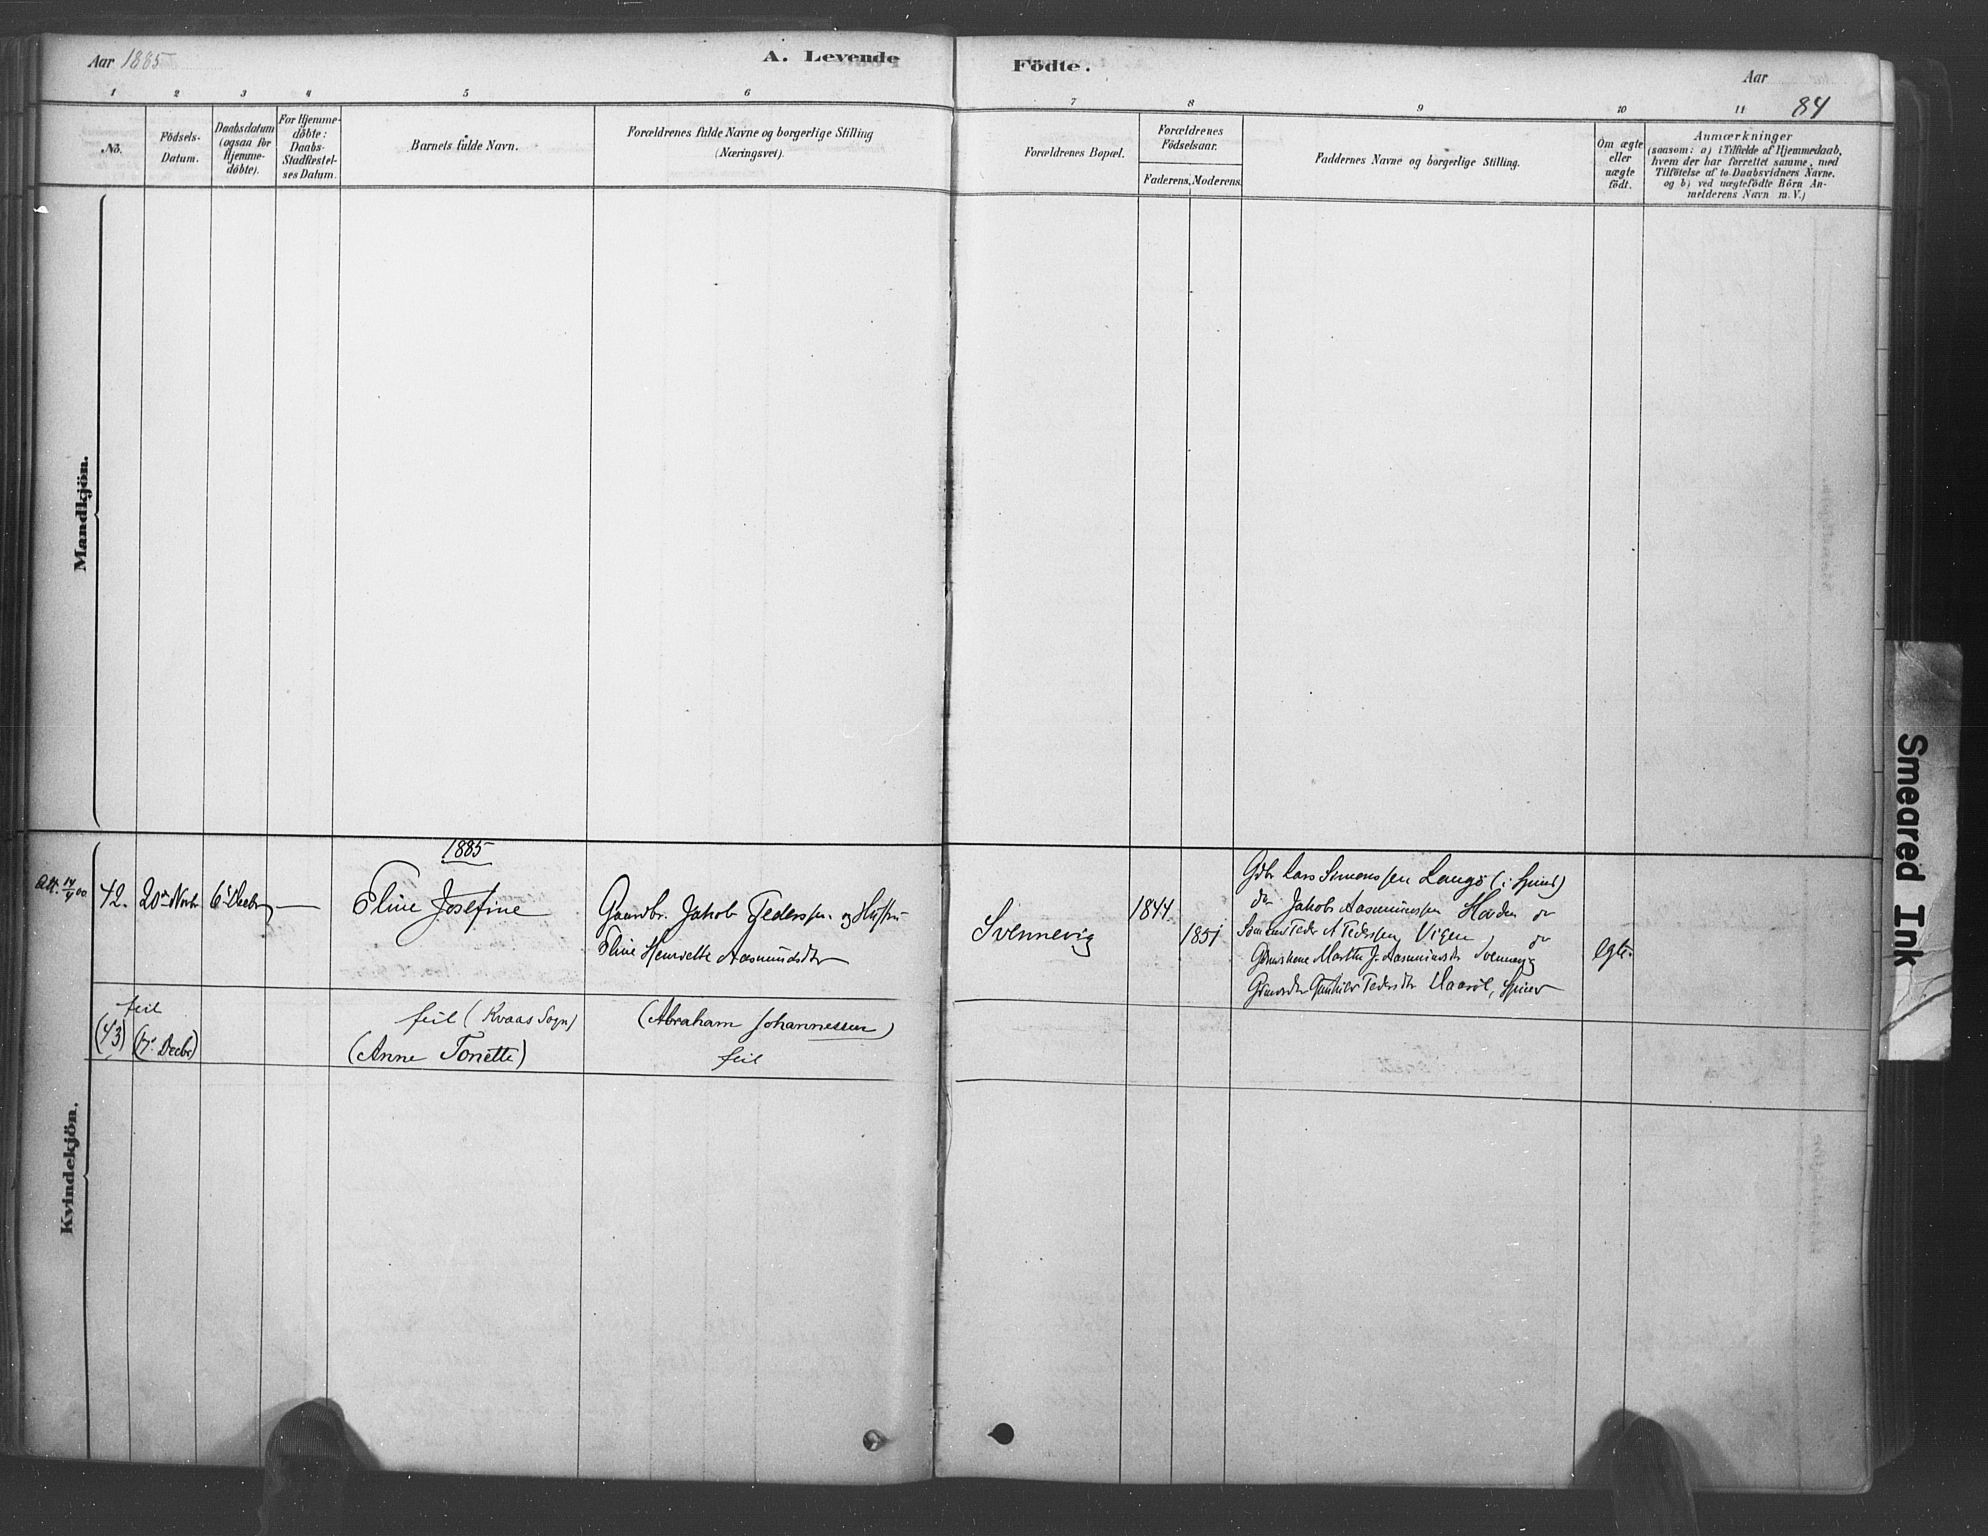 Aar 1885
A. Levende
Födte.
Aar
84
1 2 3 4 5 6 7 8 9 10 11
No.
Födsels-
Datum.
Daabsdatum
(ogsaa for
Hjemme-
döbte).
For Hjemme-
döbte:
Daabs-
Stadfæstel-
ses Datum.
Barnets fulde Navn.
Forældrenes fulde Navne og borgerlige Stilling
(Næringsvei).
Forældrenes Bopæl.
Forældrenes
Födselsaar.
Faderens. Moderens.
Faddernes Navne og borgerlige Stilling.
Om ægte
eller
uægte
födt.
Anmærkninger
(saasom: a) i Tilfælde af Hjemmedaab,
hvem der har forrettet samme, med
Tilföielse af to Daabsvidners Navne.
og b) ved uægtefödte Börn An-
melderens Navn m. V.)
Mandkjön.
Kvindekjön.
1885
Att. 14/9 00
42.
20de Novbr
6te Decbr
—
Eline Josefine
Gaardbr. Jakob Pedersen og Hustru
Eline Henriette Aasmundsdtr
Svennevig
1844
1851
Gdbr Lars Simonssen Langö (i Spind)
do Jakob Aasmundssen Haaden
Pedersen Vigen
Marthe J. Aasmundsdtr Svennevig
Pedersdtr
egte.
feil
(43)
(7de Decbr)
feil (Kvaas Sogn)
(Anne Tonette)
(Abraham Johannessen)
feil
Smeared Ink